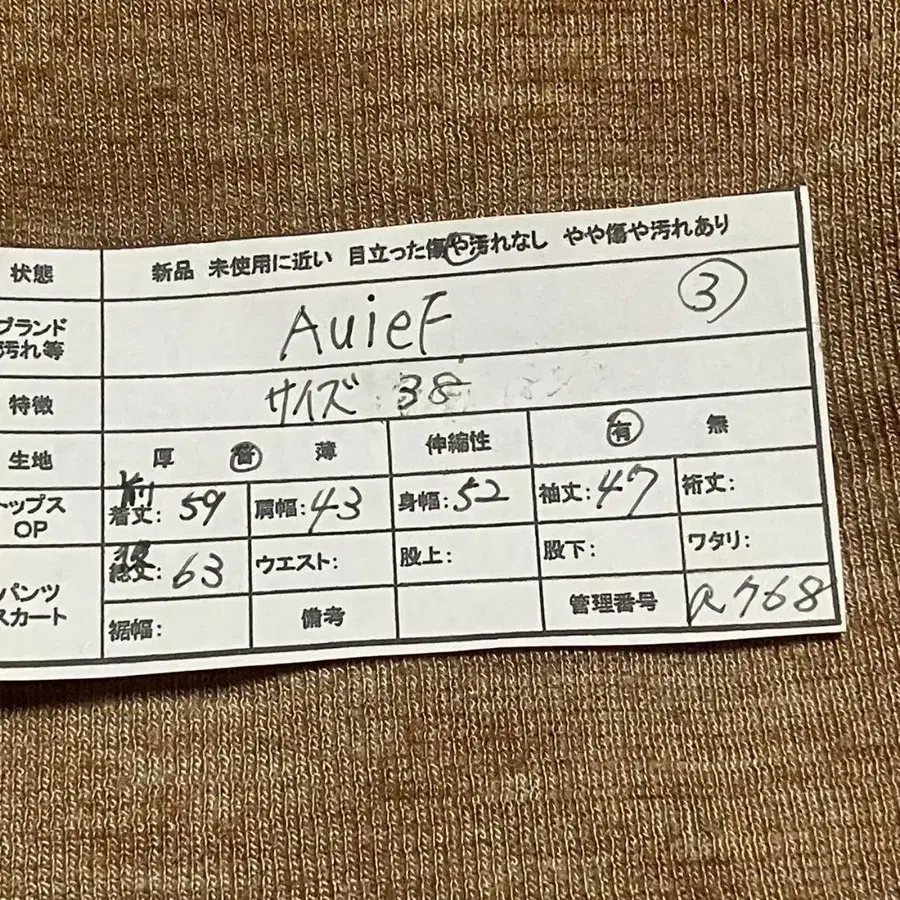 状態 新品 未使用に近い 目立った傷や汚れなし やや傷や汚れあり
ブランド
汚れ等 AuieF ③
特徴 サイズ 38
生地 厚 普 薄 伸縮性 有 無
トップス
OP 前 着丈: 59 肩幅: 43 身幅: 52 袖丈: 47 裄丈:
パンツ
スカート 後 総丈: 63 ウエスト: 股上: 股下: ワタリ:
裾幅: 備考 管理番号 R768